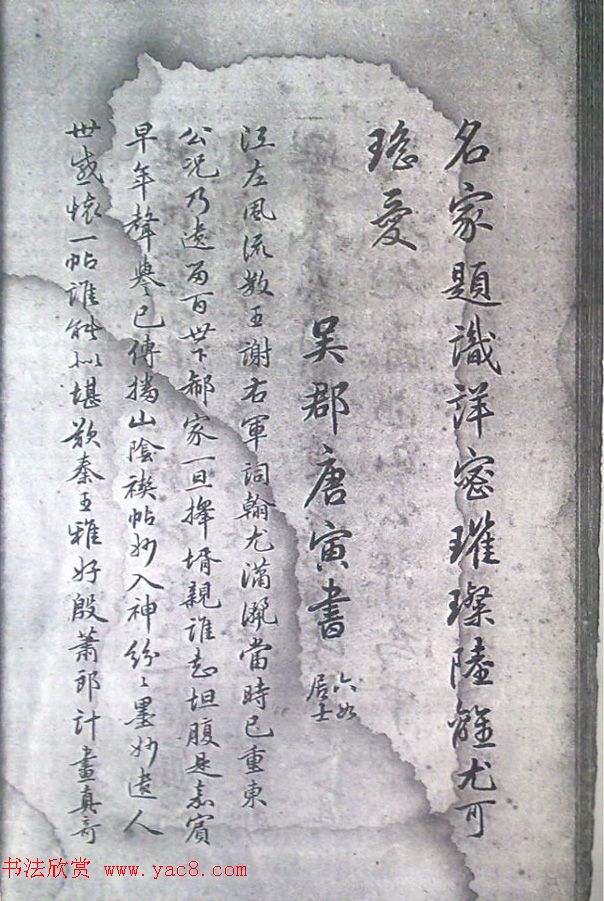 名家題識詳密璀璨陸離尤可
珤愛
吳郡唐寅書
六如
居士
江左風流數王謝右軍詞翰尤瀟灑當時已重東
公況乃遺留百世下郗家一旦擇壻親誰知坦腹是嘉賓
早年聲譽已傳播山陰禊帖妙入神紛〻墨妙遺人
世感懷一帖誰能似堪歎秦王雅好殷蕭郎計畫真奇
书法欣赏 www.yac8.com